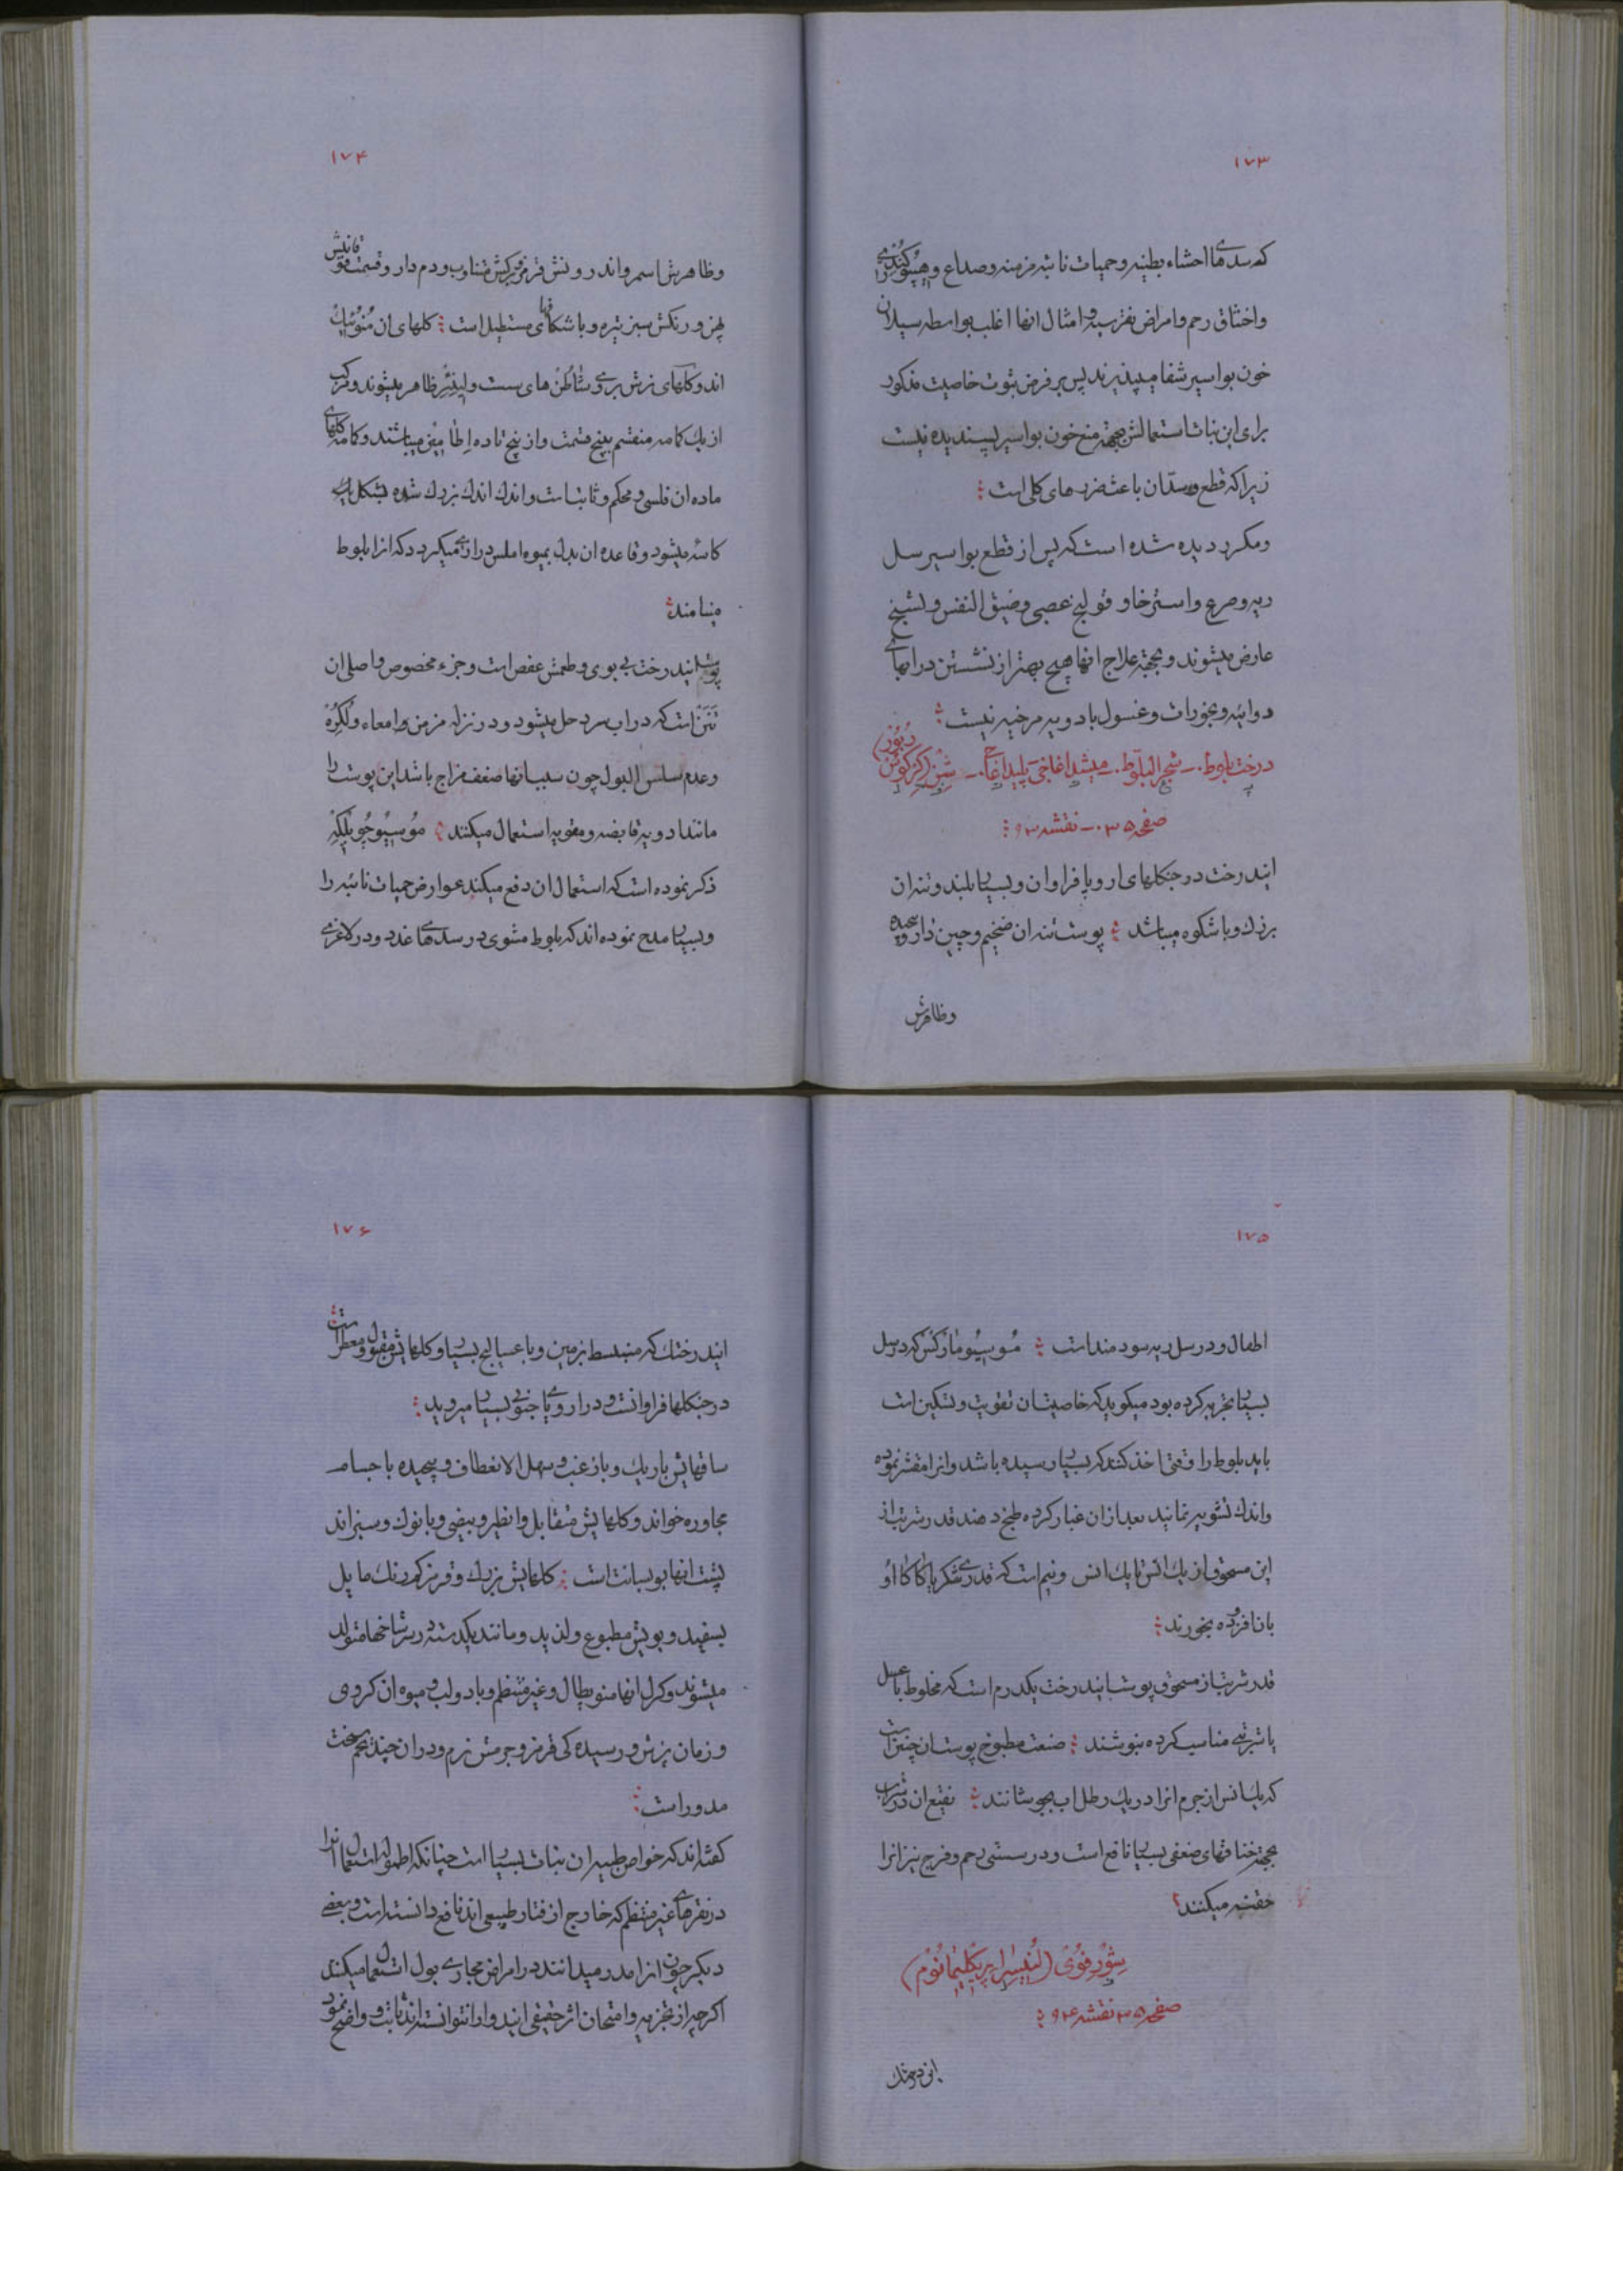 ۱۷۳
که سدهای احشاء بطنیه وحمیات نائبه مزمنه وصداع و هیپوکندری را
واختناق رحم وامراض نقرسیه وامثال انها اغلب بواسطه سیلان
خون بواسیر شفا میپذیرند پس بر فرض ثبوت خاصیت مذکور
برای این نبات استعمالش بجهته منع خون بواسیر پسندیده نیست
زیرا که قطع وسدّان باعث ضررهای کلی است
ومکرر دیده شده است که پس از قطع بواسیر سل
ریه وصرع واسترخا و قولنج عصبی وضیق النفس وتشنج
عارض میشوند وبجهته علاج انها هیچ بهتر از نشستن در ابهای
دوائیه وبخورات وغسول بادویه مرخیه نیست
درخت بلوط ـ شجر البلوط ـ میشه اغاجی پلید اغاجی ـ شِن
صفحه ۳۵ ـ نقشه ۹۳
ایندرخت در جنکلهای اروپا فراوان وبسیار بلند وتنه ان
بزرك وباشکوه میباشد پوست تنه ان ضخیم وچین دار
وظاهرش
۱۷۴
وظاهرش اسمر واندرونش قرمز وبرکش متناوب ودم دار وقسمت فوقانیش
پهن ورنکش سبز تیره وبا شکافهای مستطیل است کلهای ان مُنوئیك
اند وکلهای نرش بروی شاطُن های سست و ظاهر میشوند ومرکب
از یك کامه منقسم بپنج قسمت واز پنج تا ده اِطامین میباشند وکامه کلهای
ماده ان فلسی ومحکم وثابت است واندك اندك بزرك شده بشکل یك
کاسه میشود وقاعده ان بدل بمیوه املس درازی میکردد که انرا بلوط
مینامند
پوست ایندرخت بی بوی وطعمش عفص است وجزء مخصوص واصلی ان
تَنَن است که در اب سرد حل میشود ودر نزله مزمن وامعاء ولکوره
وعدم سلس البول چون سبب انها ضعف مزاج باشد این پوست را
مانند ادویه قابضه ومقویه استعمال میکنند مُوسیُو
ذکر نموده است که استعمال ان دفع میکند عوارض حمیات نائبه را
وبسیار مدح نموده اند که بلوط مشوی در سدهای غدد ودر لاغری
۱۷۵
اطفال ودر سل ریه سودمند است مُوسیُو مارکس که در سل
بسیار تجربه کرده بود میکوید که خاصیت ان تقویت وتسکین است
باید بلوط را وقتی اخذ کنند که بسیار رسیده باشد وانرا مقشر نموده
واندك تشویه نمایند بعد ازان غبار کرده طبخ دهند قدر شربت از
این مسحوق از یك انس تا یك انس ونیم است که قدری شکر یا کاکااُو
بانافزوده بخورند
قدر شربت از مسحوق پوست ایندرخت یکدرم است که مخلوط با عسل
یا شربتی مناسب کرده بنوشند صنعت مطبوخ پوست ان چنین است
که یك انس از جرم انرا در یك رطل اب بجوشانند نقیع ان در شراب
بجهته خناقهای ضعفی بسیار نافع است ودر سستی رحم وفرج نیز انرا
حقنه میکنند
شِوْرفُوْیْ (لُنیسرا پریکلیمانوُم)
صفحه ۳۵ نقشه ۹۴
ایندرختك
۱۷۶
ایندرختك که منبسط بزمین وبا عسالیج بسیار وکلهایش مقبول ومعطر است
در جنکلها فراوانست ودر اروپای جنوبی بسیار میروید
ساقهایش باریك وبا زغب وسهل الانعطاف وپیچیده باجسام
مجاوره خود اند وکلهایش متقابل وانظیر وبیضی وبا نوك وسبزاند
پشت انها بوسانت است کلهایش بزرك وقرمز کمرنك مایل
بسفید وبویش مطبوع ولذیذ ومانند یکدسته در سر شاخها متولد
میشوند وکرل انها منوپطال وغیر منتظم وبا دو لب ومیوه ان کروی
وزمان پزش ورسیده کی قرمز وجرمش نرم ودر ان چند تخم سخت
مدور است
کفته اند که خواص طبیه ان نبات بسیار است چنانکه استعمال انرا
در نقرهای غیر منتظم که خارج از رفتار طبیعی اند نافع دانسته است وبعضی
دیکر چون انرا مدر میدانند در امراض مجاری بول استعمال میکنند
اکر چه از تجربه وامتحان اثر حقیقی ایندوا را نتوانسته اند ثابت و واضح نمود